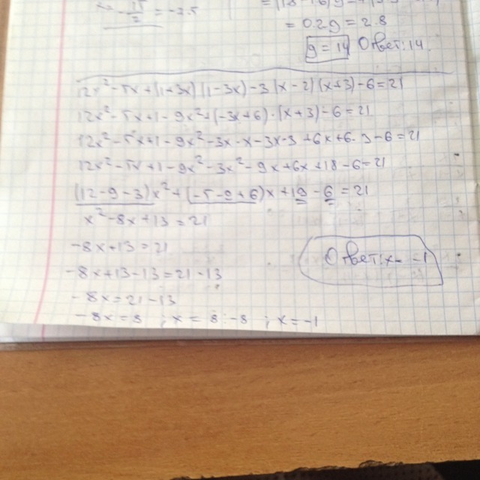 = - 15/2 = -2.5
= 0.2g = 2.8
g = 14 Ответ: 14.
12x² - 5x + (1+3x)(1-3x) - 3(x-2)(x+3) - 6 = 21
12x² - 5x + 1 - 9x² + (-3x+6)·(x+3) - 6 = 21
12x² - 5x + 1 - 9x² - 3x·x - 3x·3 + 6x + 6·3 - 6 = 21
12x² - 5x + 1 - 9x² - 3x² - 9x + 6x + 18 - 6 = 21
(12-9-3)x² + (-5-9+6)x + 19 - 6 = 21
x² - 8x + 13 = 21
-8x + 13 = 21
-8x + 13 - 13 = 21 - 13
-8x = 21 - 13
-8x = 8 ; x = 8:-8 ; x = -1
Ответ: x = -1